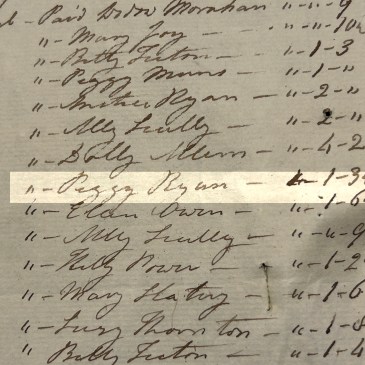 Paid Widow Monahan "-"-9
"- Mary Joy - "-"-10
"- Betty Tuton - "-1-3
"- Peggy Munns - "-1-"
"- Ryan - "-2-"
"- Ally Scully - "-2-"
"- Dolly Allen - "-4-2
"- Peggy Ryan - "-1-3
"- Elan Owen - "-1-6
"- Ally Scully - "-"-9
"- Kitty Power - "-1-2
"- Mary Slatery - "-1-6
"- Suzy Thornton - "-1-8
" Betty Tuton - "-1-4